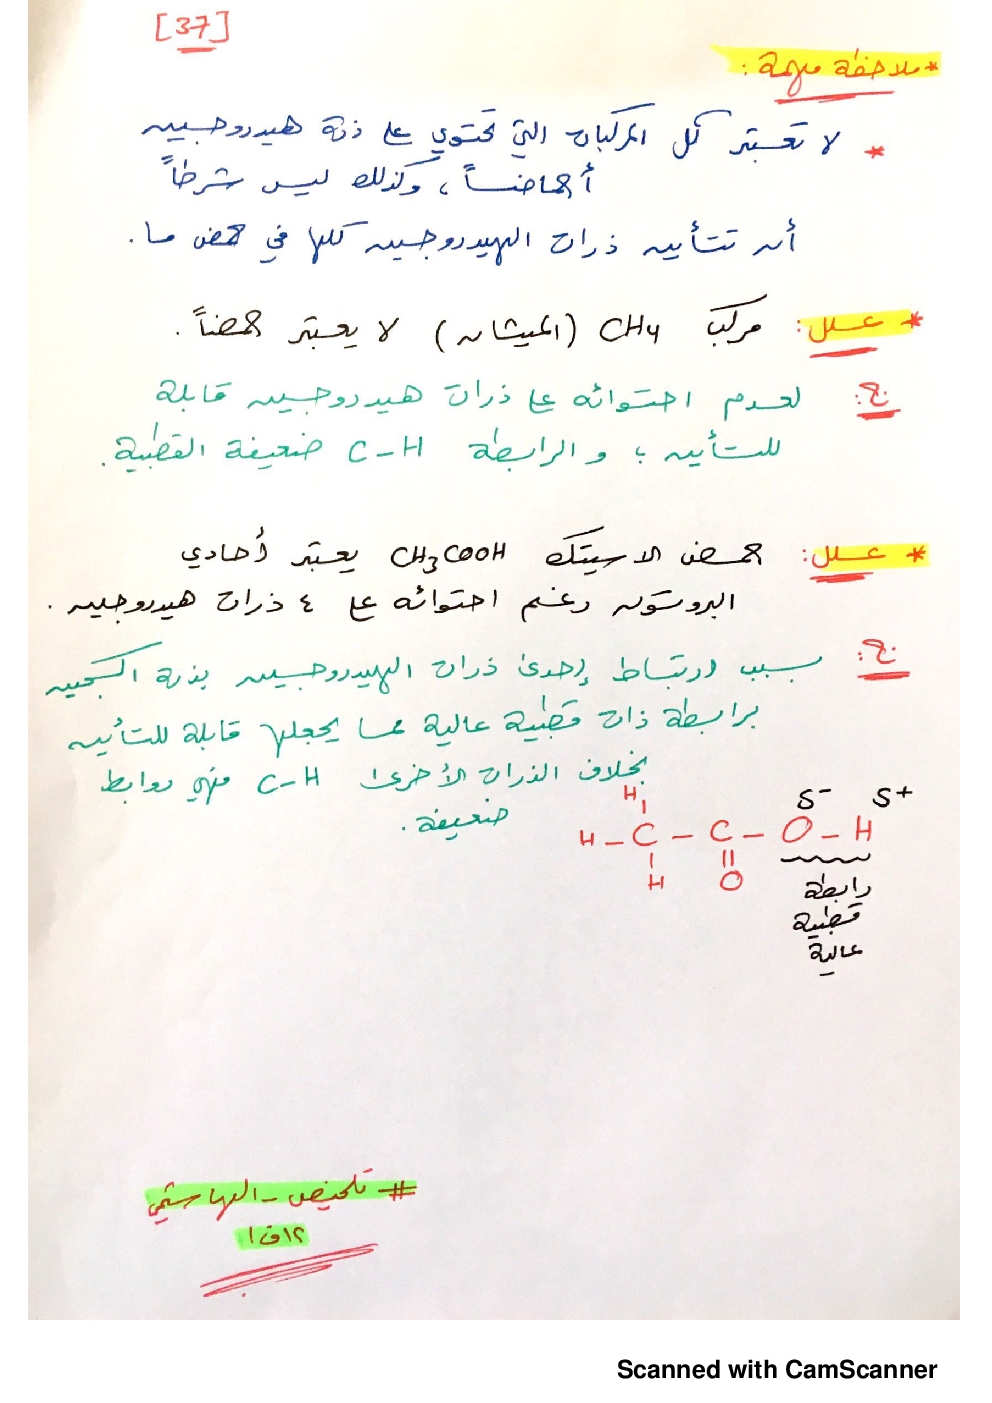 [37]
* ملاحظة مهمة :
* لا تعتبر كل المركبات التي تحتوي على ذرة هيدروجين
أحماضاً ، وكذلك ليس شرطاً
أن تتأين ذرات الهيدروجين كلها في حمض ما .
* علل : مركب CH4 (الميثان) لا يعتبر حمضاً .
ج: لعدم احتوائه على ذرات هيدروجين قابلة
للتأين ، والرابطة C-H ضعيفة القطبية .
* علل : حمض الاسيتك CH3COOH يعتبر أحادي
البروتون رغم احتوائه على ٤ ذرات هيدروجين .
ج: بسبب ارتباط إحدى ذرات الهيدروجين بذرة اكسجين
برابطة ذات قطبية عالية مما يجعلها قابلة للتأين
بخلاف الذرات الأخرى C-H فهي روابط
ضعيفة .
H δ- δ+
H - C - C - O - H
H O
رابطة
قطبية
عالية
# تلخيص - الهاشمي
١٢ ف ١
Scanned with CamScanner